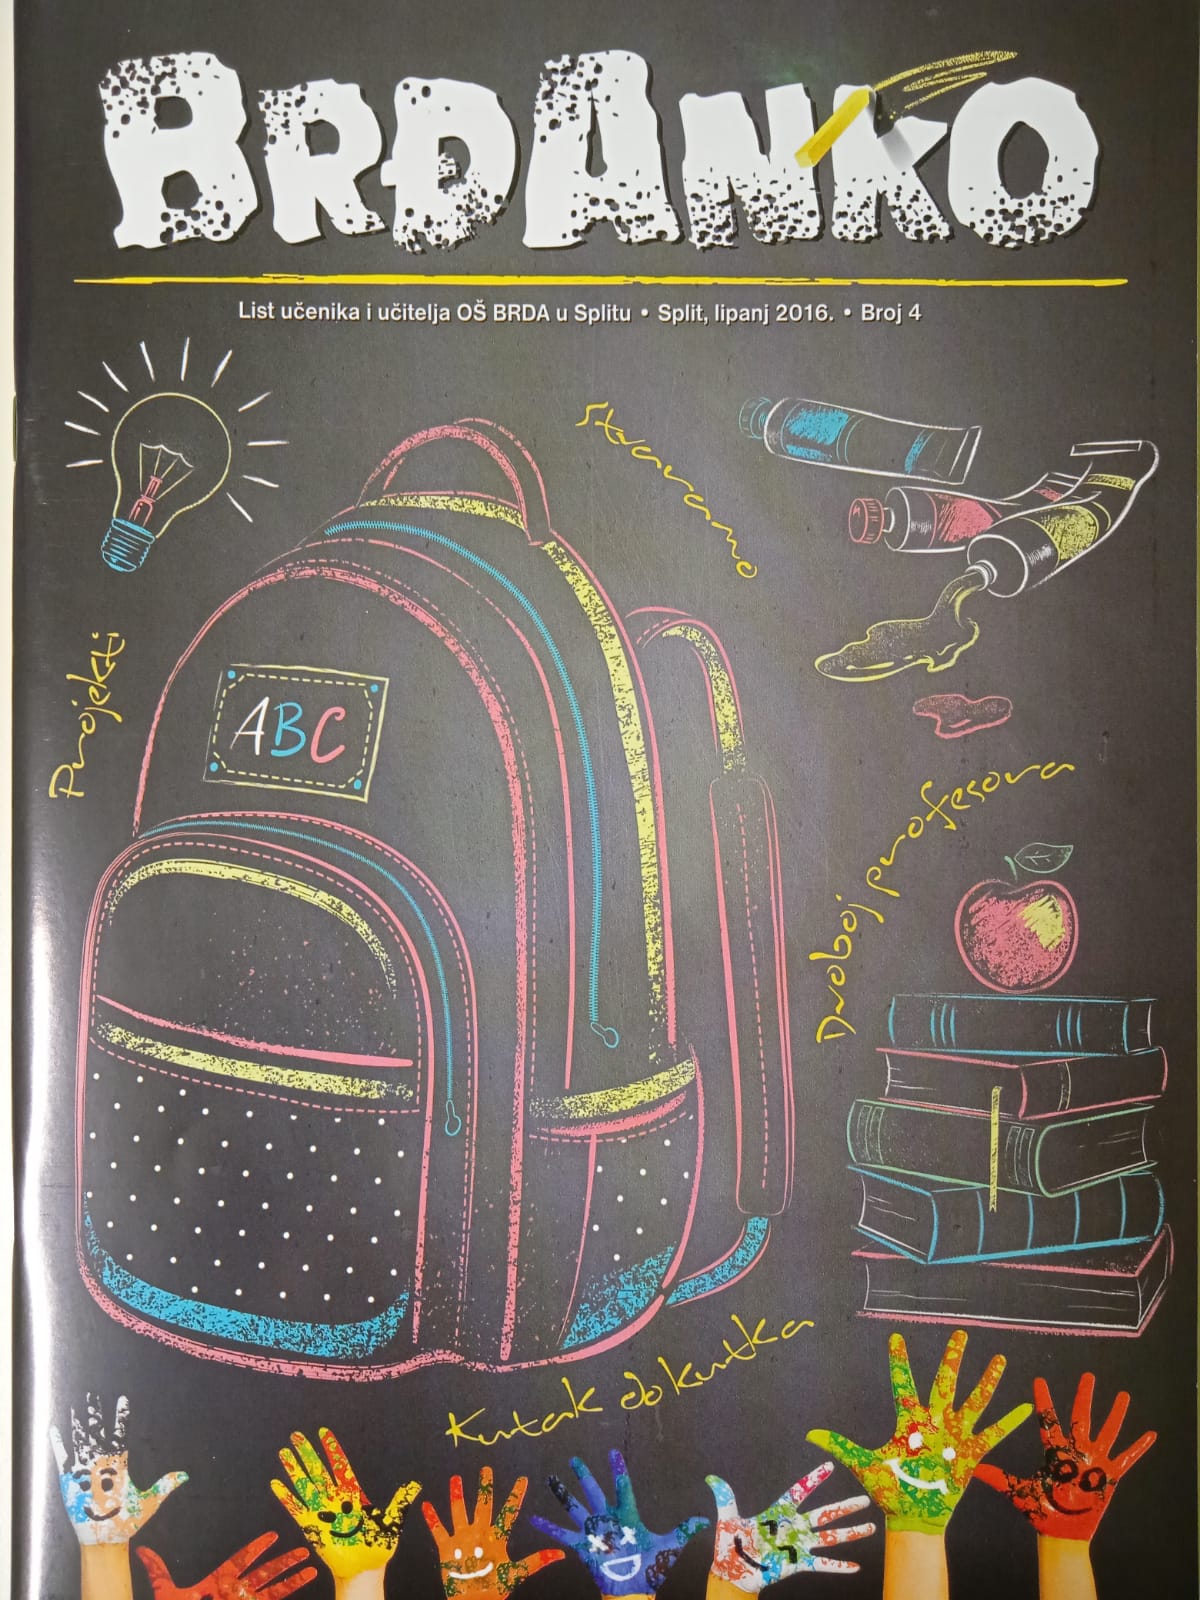 BRĐANKO
List učenika i učitelja OŠ BRDA u Splitu • Split, lipanj 2016. • Broj 4
Stvaramo
Projekti
ABC
Dvoboj profesora
Kutak do kutka